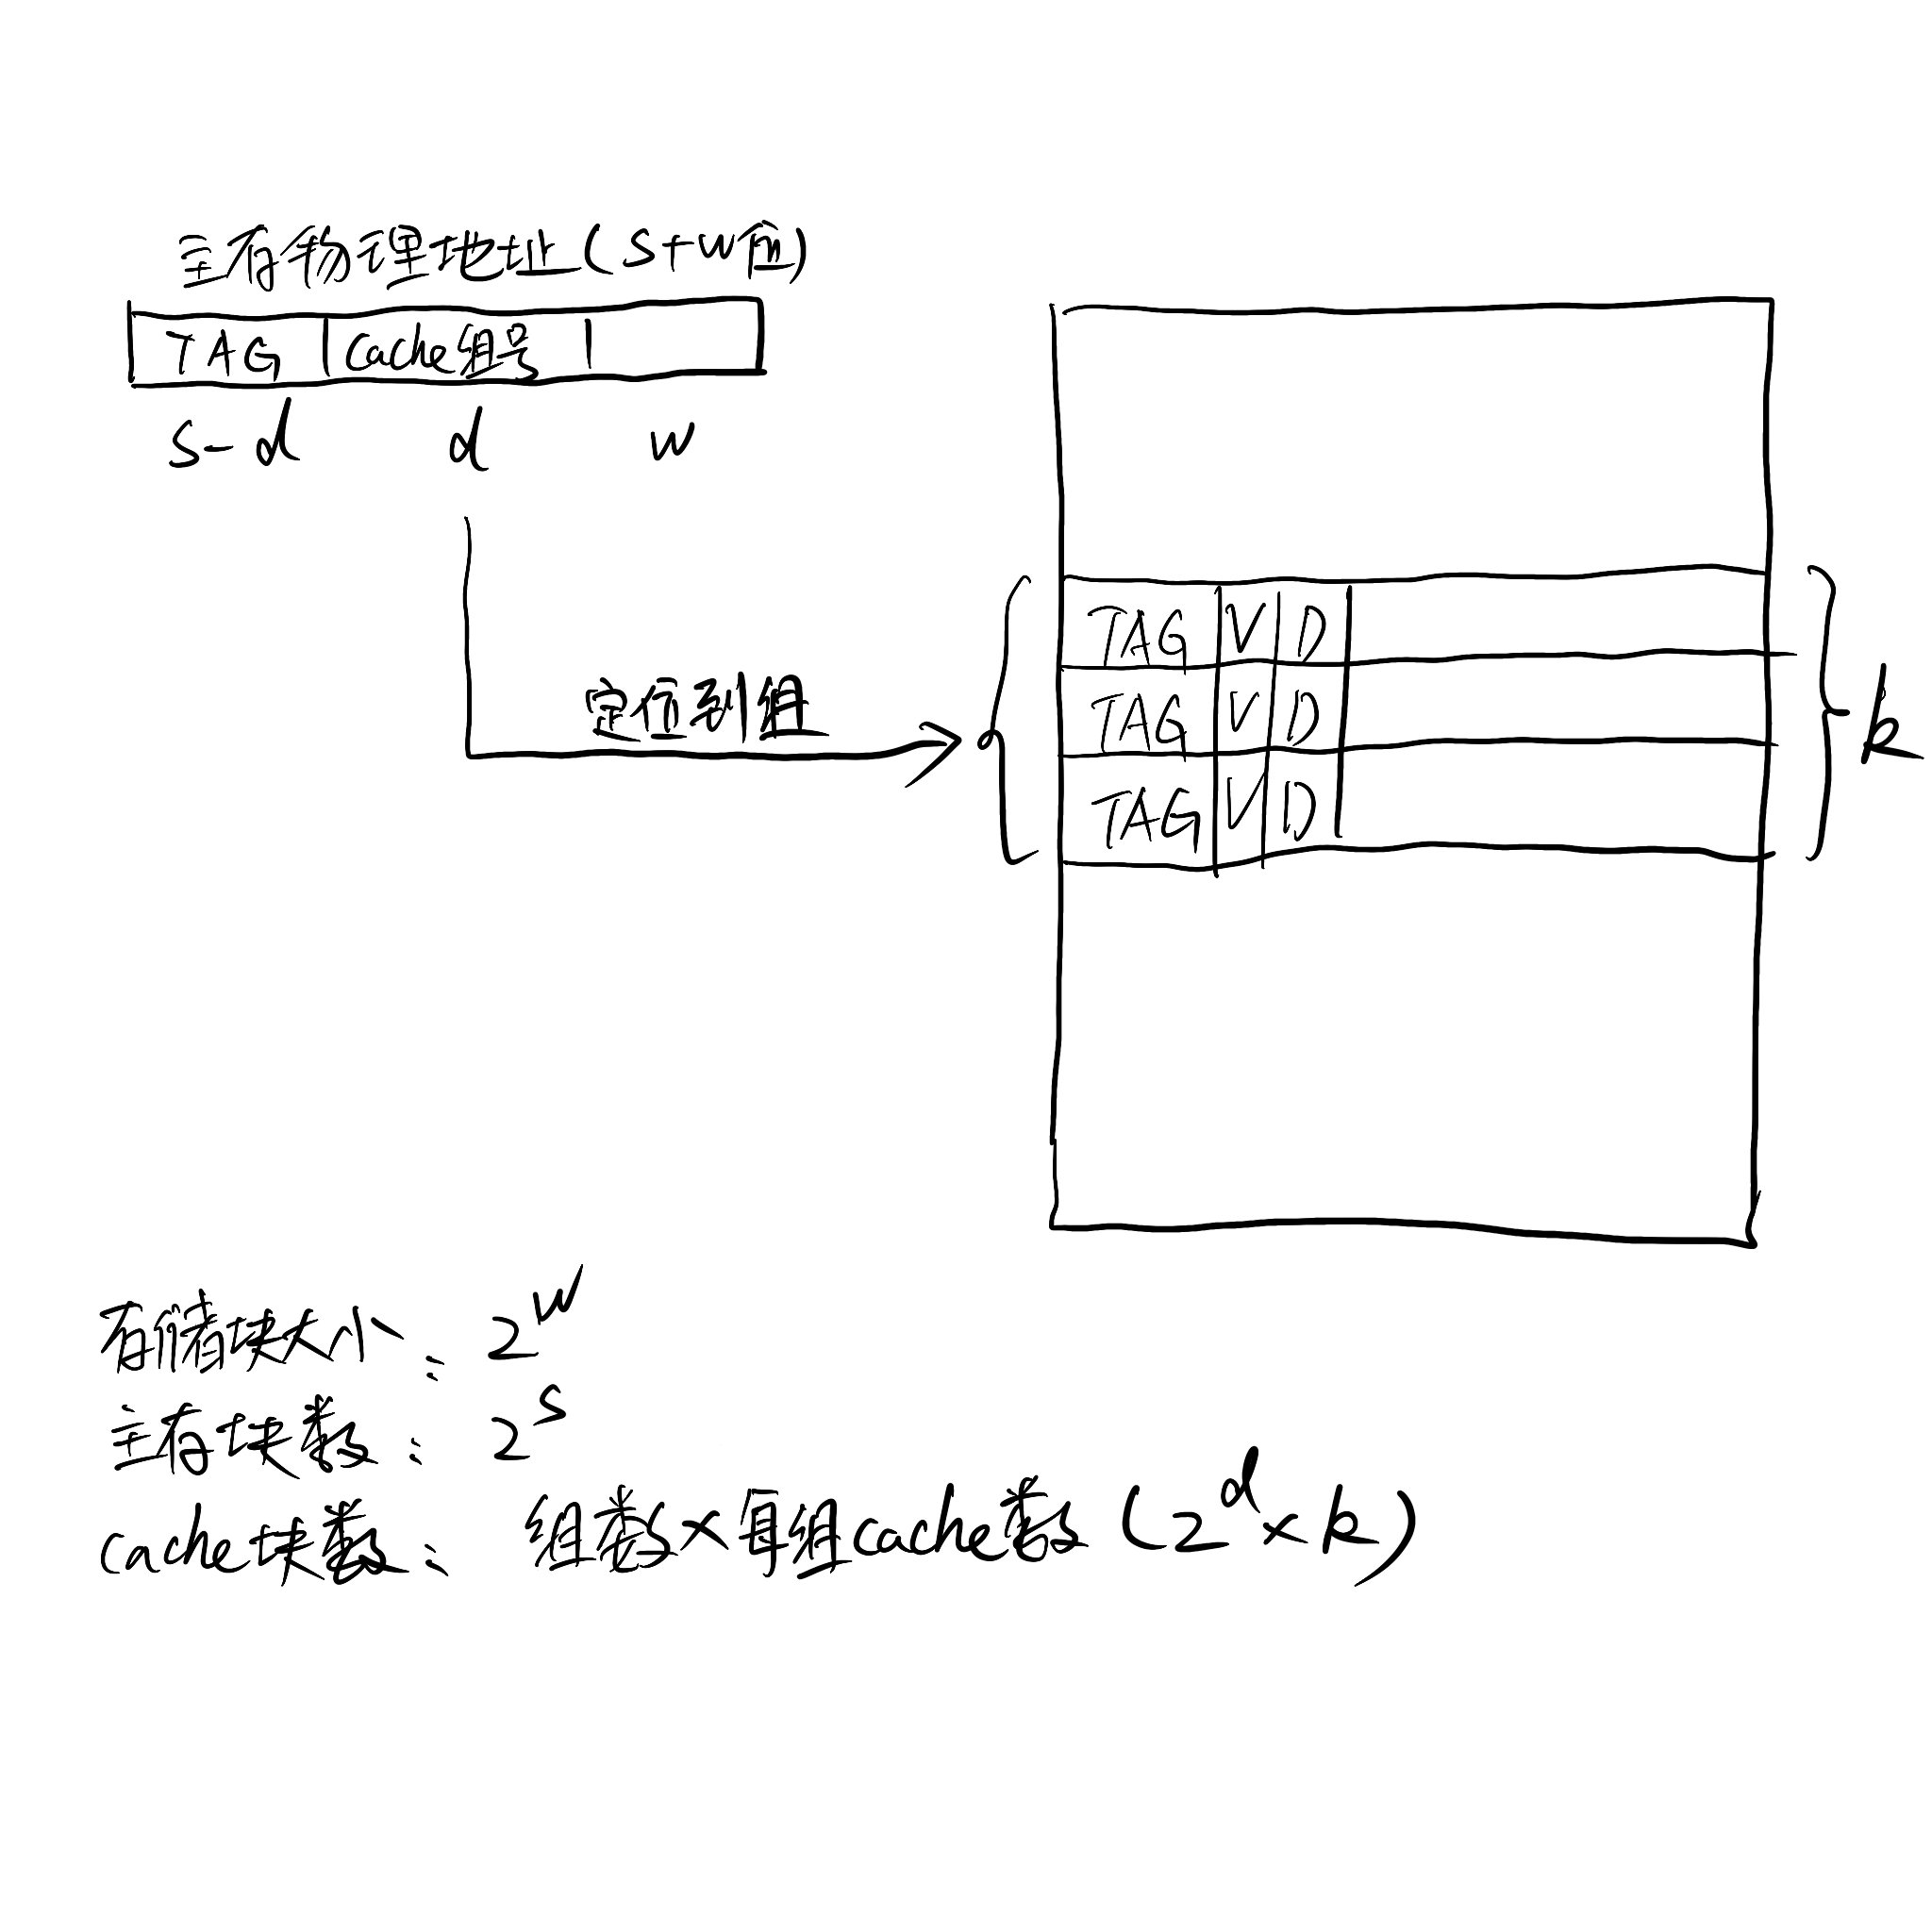 主存物理地址(S+W位)
TAG Cache组号
S-d d w
定位到组
TAG V D
TAG V D
TAG V D
k
存储块大小: 2^W
主存块数: 2^S
cache块数: 组数×每组cache数 (2^d×k)